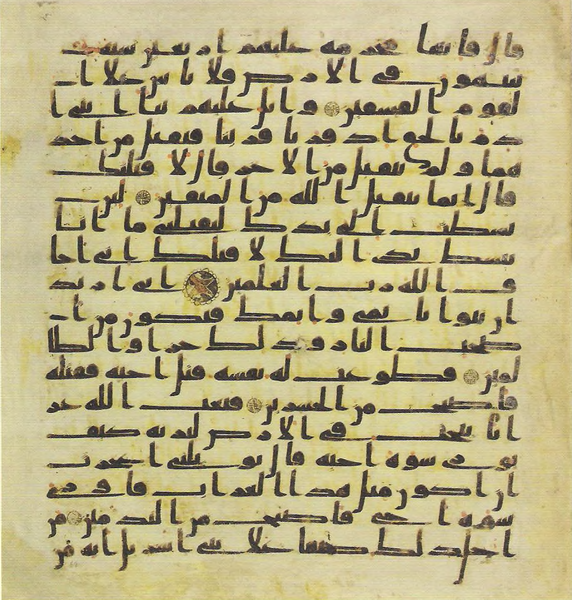 قال فانها محرمة عليهم اربعين سنة
يتيهون في الارض فلا تاس علا ا
لقوم الفسقين ۝ واتل عليهم نبا ابني ا
دم بالحق اذ قربا قربنا فتقبل من احد
هما ولم يتقبل من الاخر قال لاقتلنك
قال انما يتقبل الله من المتقين ۝ لئن
بسطت الي يدك لتقتلني ما انا
ببسط يدي اليك لاقتلك اني اخا
ف الله رب العلمين ۝ اني اريد
ان تبوا باثمي واثمك فتكون من ا
صحب النار وذلك جزاوا الظ
لمين ۝ فطوعت له نفسه قتل اخيه فقتله
فاصبح من الخسرين ۝ فبعث الله غر
ابا يبحث في الارض ليريه كيف
يوري سوه اخيه قال يويلتي اعجزت
ان اكون مثل هذا الغراب فاوري
سوه اخي فاصبح من الندمين ۝ من
اجل ذلك كتبنا علا بني اسريل انه من